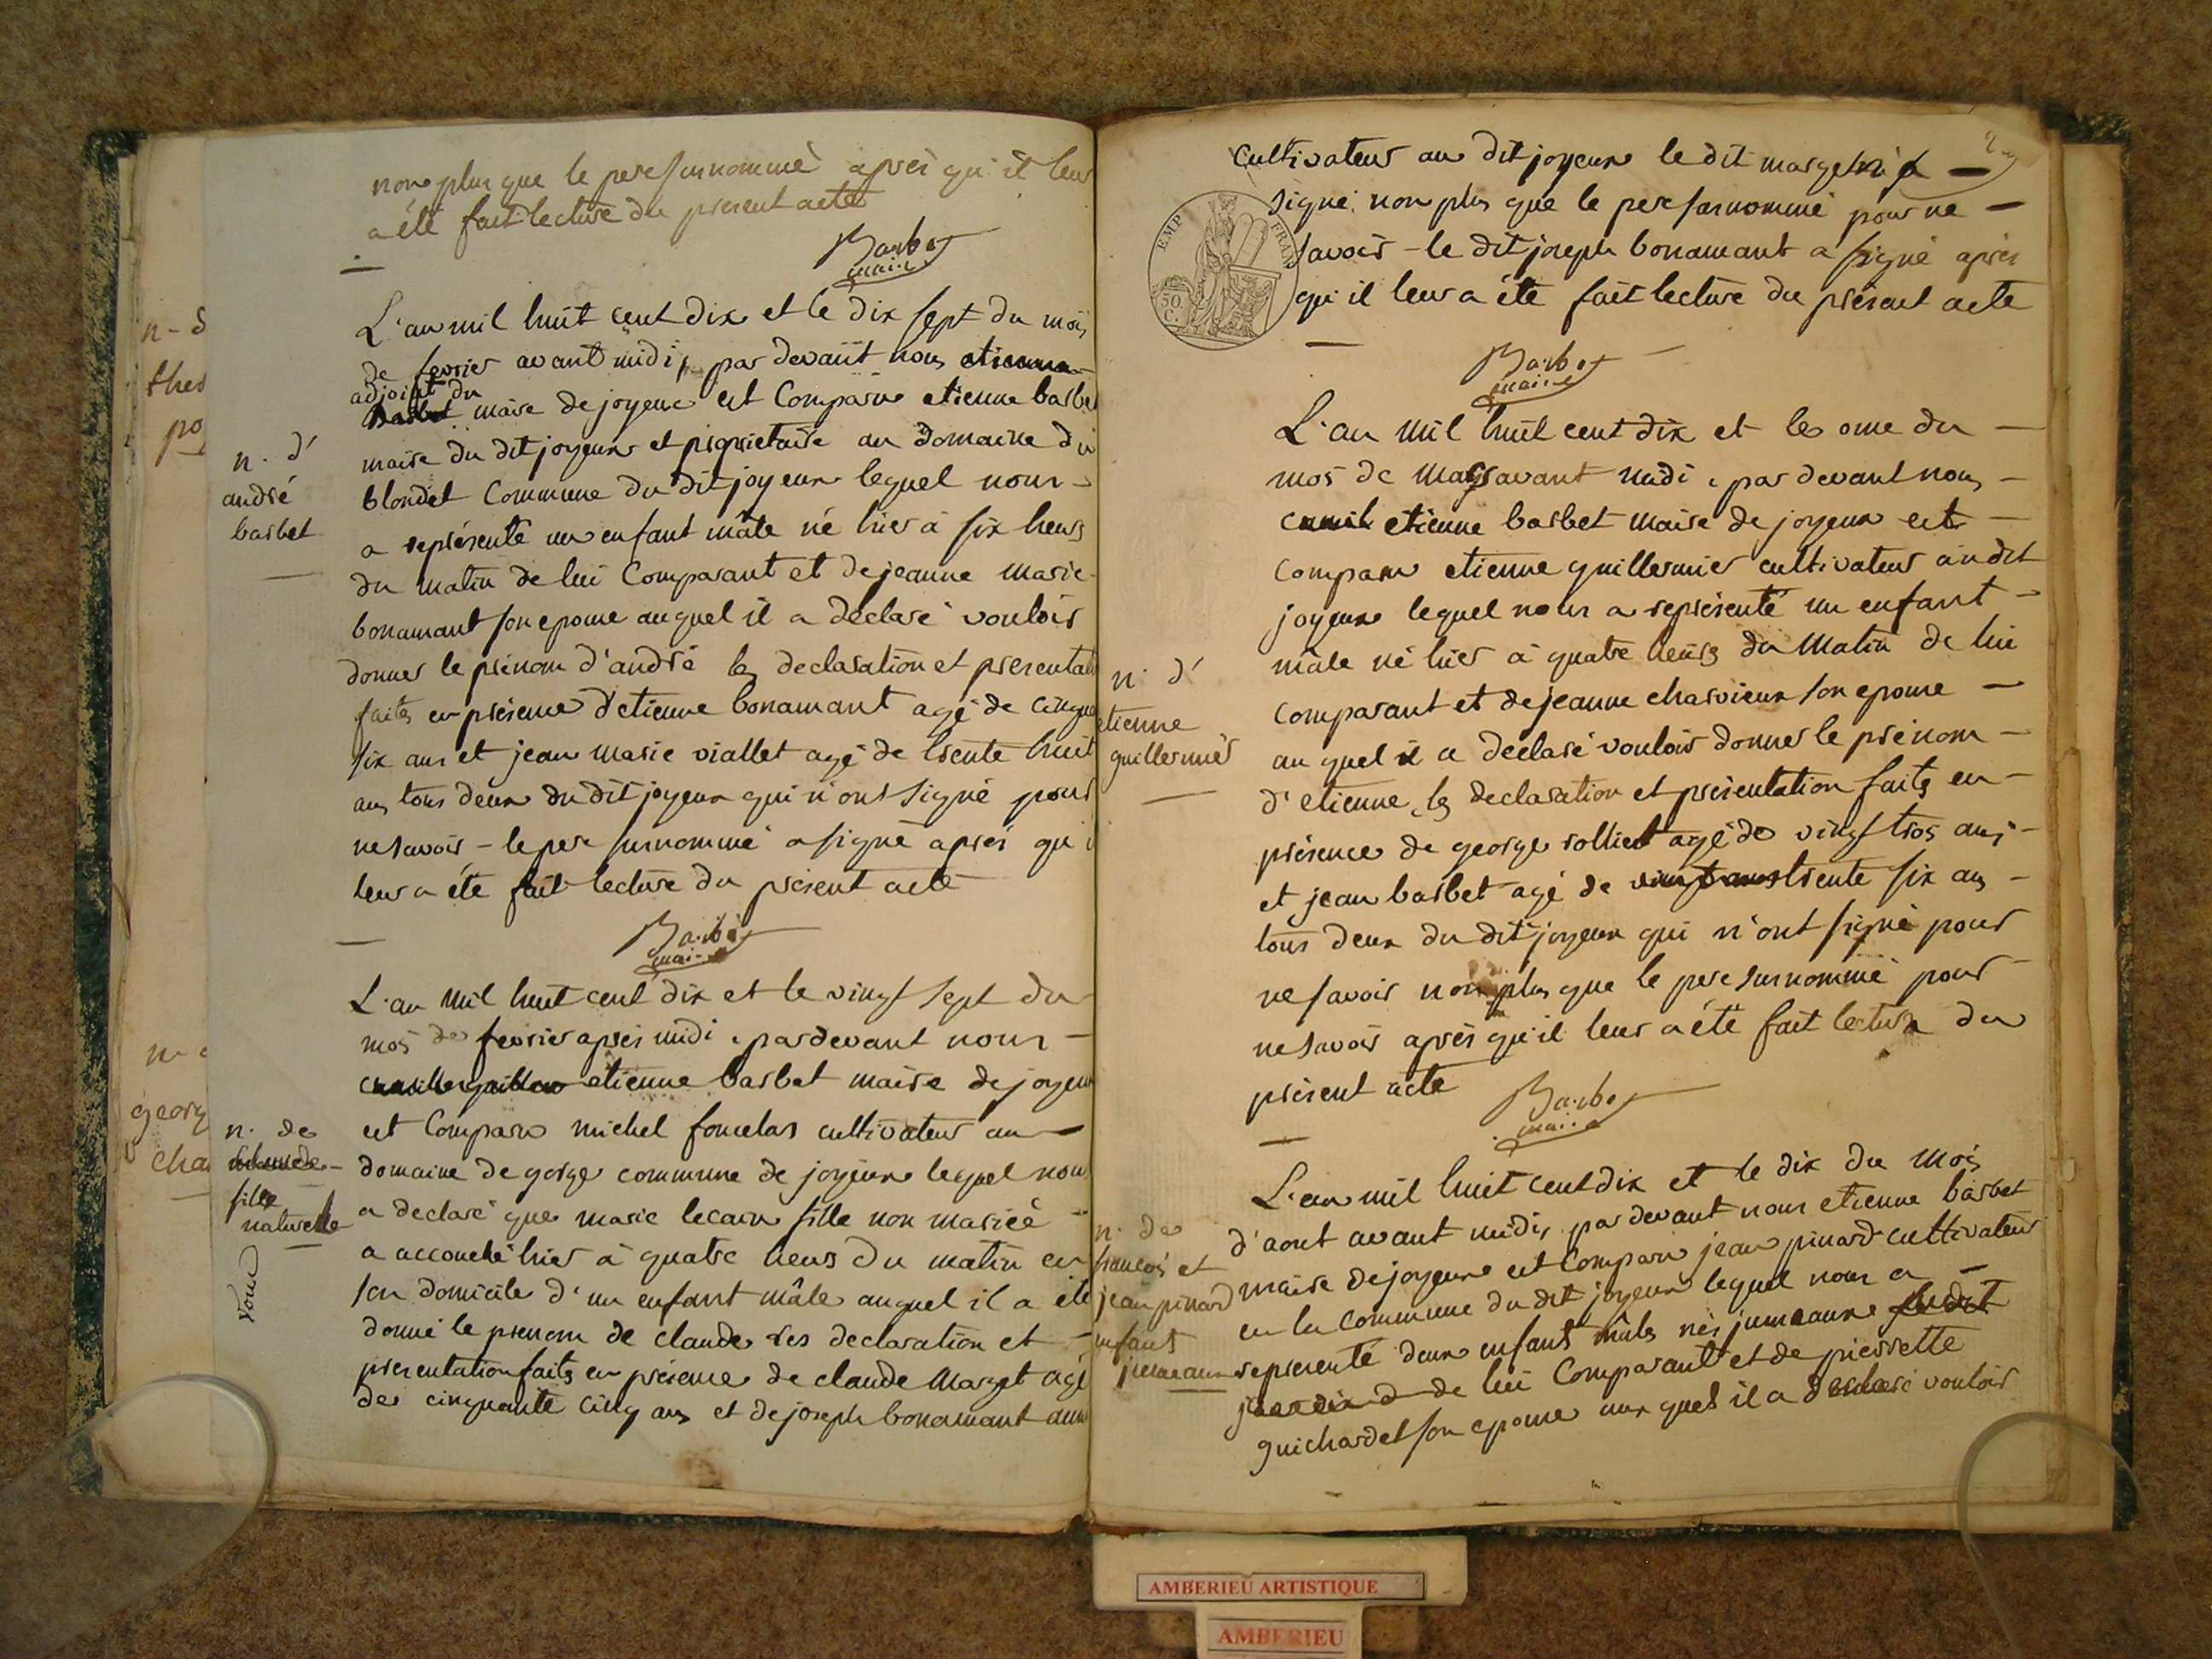 non plus que le pere surnommé après qu'il leur
a été fait lecture du present acte
Barbet
maire
L'an mil huit cent dix et le dix sept du mois
de fevrier avant midi, par devant nous etienne
adjoint du
Barbet maire de joyeux est Comparu etienne barbet
maire du dit joyeux et propriétaire au domaine du
blondel Commune du dit joyeux lequel nous
a représenté un enfant mâle né hier à six heurs
du matin de lui Comparant et de jeanne Marie
bonamant son epouse auquel il a déclaré vouloir
donner le prénom d'andré les declaration et presentati
faites en présence d'etienne bonamant agé de cinqua
six ans et jean Marie viallet agé de trente huit
ans tous deux du dit joyeux qui n'ont signé pour
ne savoir - le pere surnommé a signé après qu'i
leur a été fait lecture du présent acte
Barbet
maire
L'an Mil huit cent dix et le vingt sept du
mois de fevrier après midi, par devant nous -
etienne barbet maire de joyeux
est Comparu michel foncelas cultivateur au
domaine de gorge commune de joyeux lequel nous
a declaré que marie lecain fille non mariée
a accouché hier à quatre heurs du matin en
son domicile d'un enfant mâle auquel il a été
donné le prenom de claude les declaration et
presentation faits en présence de claude Marget agé
de cinquante cinq ans et de joseph bonamant aussi
n. d'
andré
barbet
n. de
fille
naturelle
n - d
thes
po
georg
cha
cultivateur au dit joyeux le dit marget n'a
signé non plus que le pere surnommé pour ne
savoir - le dit joseph bonamant a signé après
qu'il leur a été fait lecture du présent acte
EMP FRAN
50 C.
Barbet
maire
L'an Mil huit cent dix et le onze du
mois de Mars avant midi, par devant nous
etienne barbet maire de joyeux est
comparu etienne guillermier cultivateur au dit
joyeux lequel nous a représenté un enfant
mâle né hier à quatre heurs du Matin de lui
comparant et de jeanne charvieux son epouse
au quel il a declaré vouloir donner le prénom
d'etienne, les declaration et présentation faits en
présence de george rolliet agé de vingt trois ans
et jean barbet agé de vingt ans trente six ans
tous deux du dit joyeux qui n'ont signé pour
ne savoir non plus que le pere surnommé pour
ne savoir après qu'il leur a été fait lecture du
présent acte
Barbet
maire
L'an mil huit cent dix et le dix du mois
d'aout avant midi, par devant nous etienne barbet
maire de joyeux est Comparu jean pinard cultivateur
en la commune du dit joyeux lequel nous a
representé deux enfants mâles nés jumeaux
de lui Comparant et de pierrette
guichardet son epouse aux quels il a declaré vouloir
n. d'
etienne
guillermier
n. de
francois et
jean pinard
enfants
jumeaux
AMBERIEU ARTISTIQUE
AMBERIEU